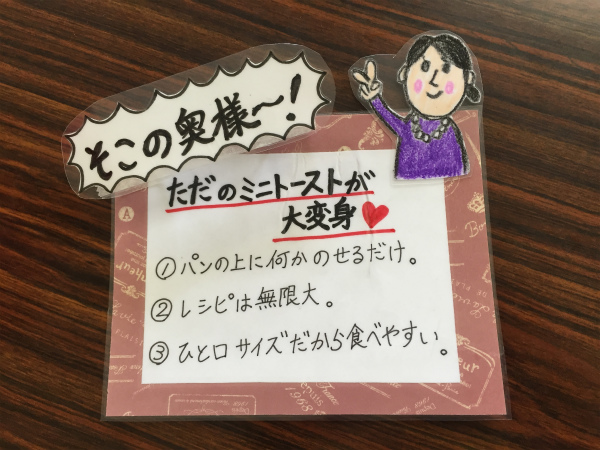 そこの奥様〜!
ただのミニトーストが
大変身♥
①パンの上に何かのせるだけ。
②レシピは無限大。
③ひと口サイズだから食べやすい。
A
France
1968